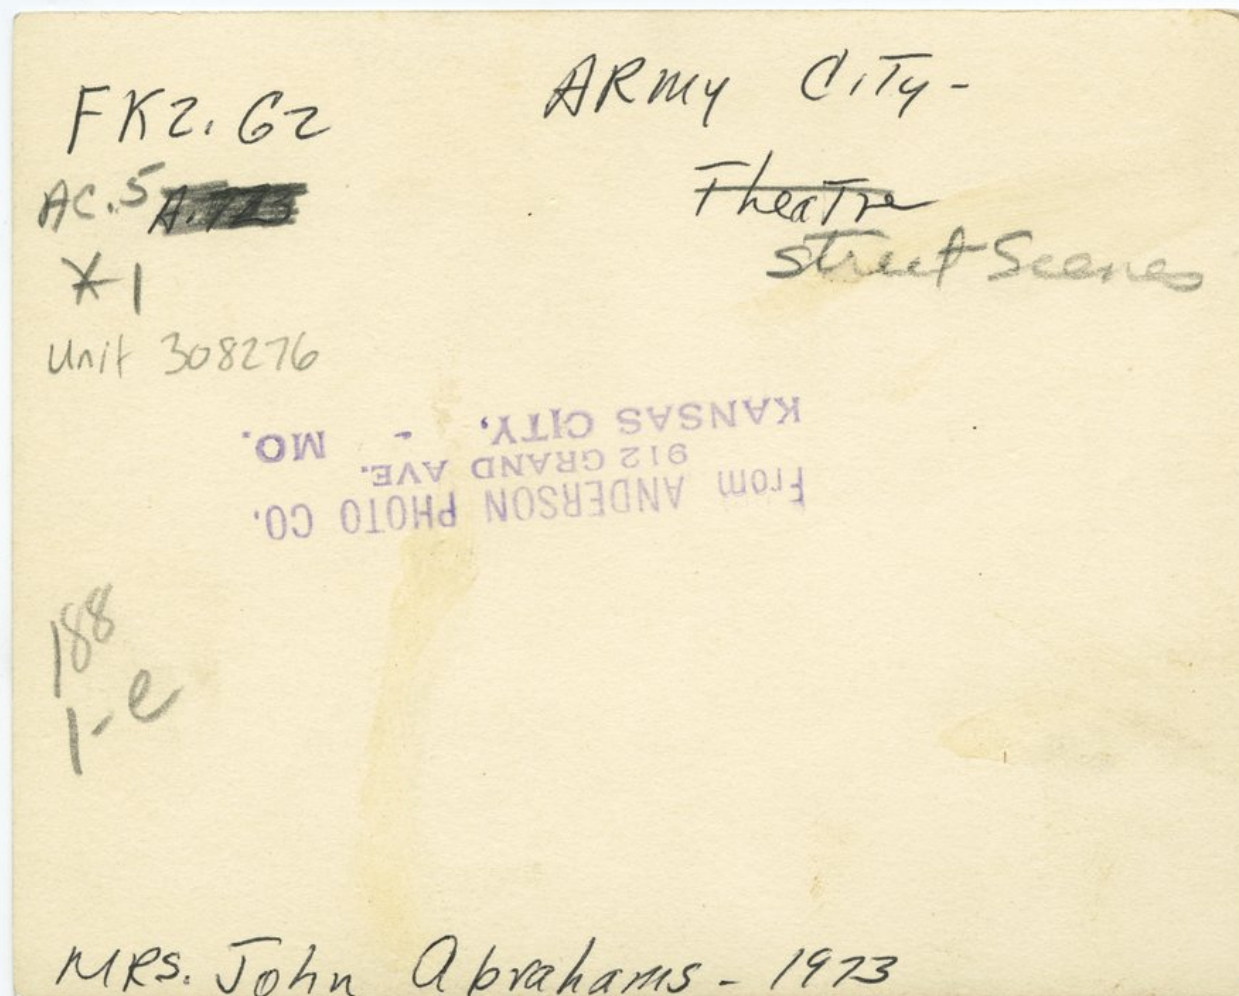 FK2. G2
AC. 5
*1
Unit 308276
ARMY CITY-
Theatre
Street Scenes
From ANDERSON PHOTO CO.
912 GRAND AVE.
KANSAS CITY, - MO.
188
1-e
MRS. John Abrahams - 1973